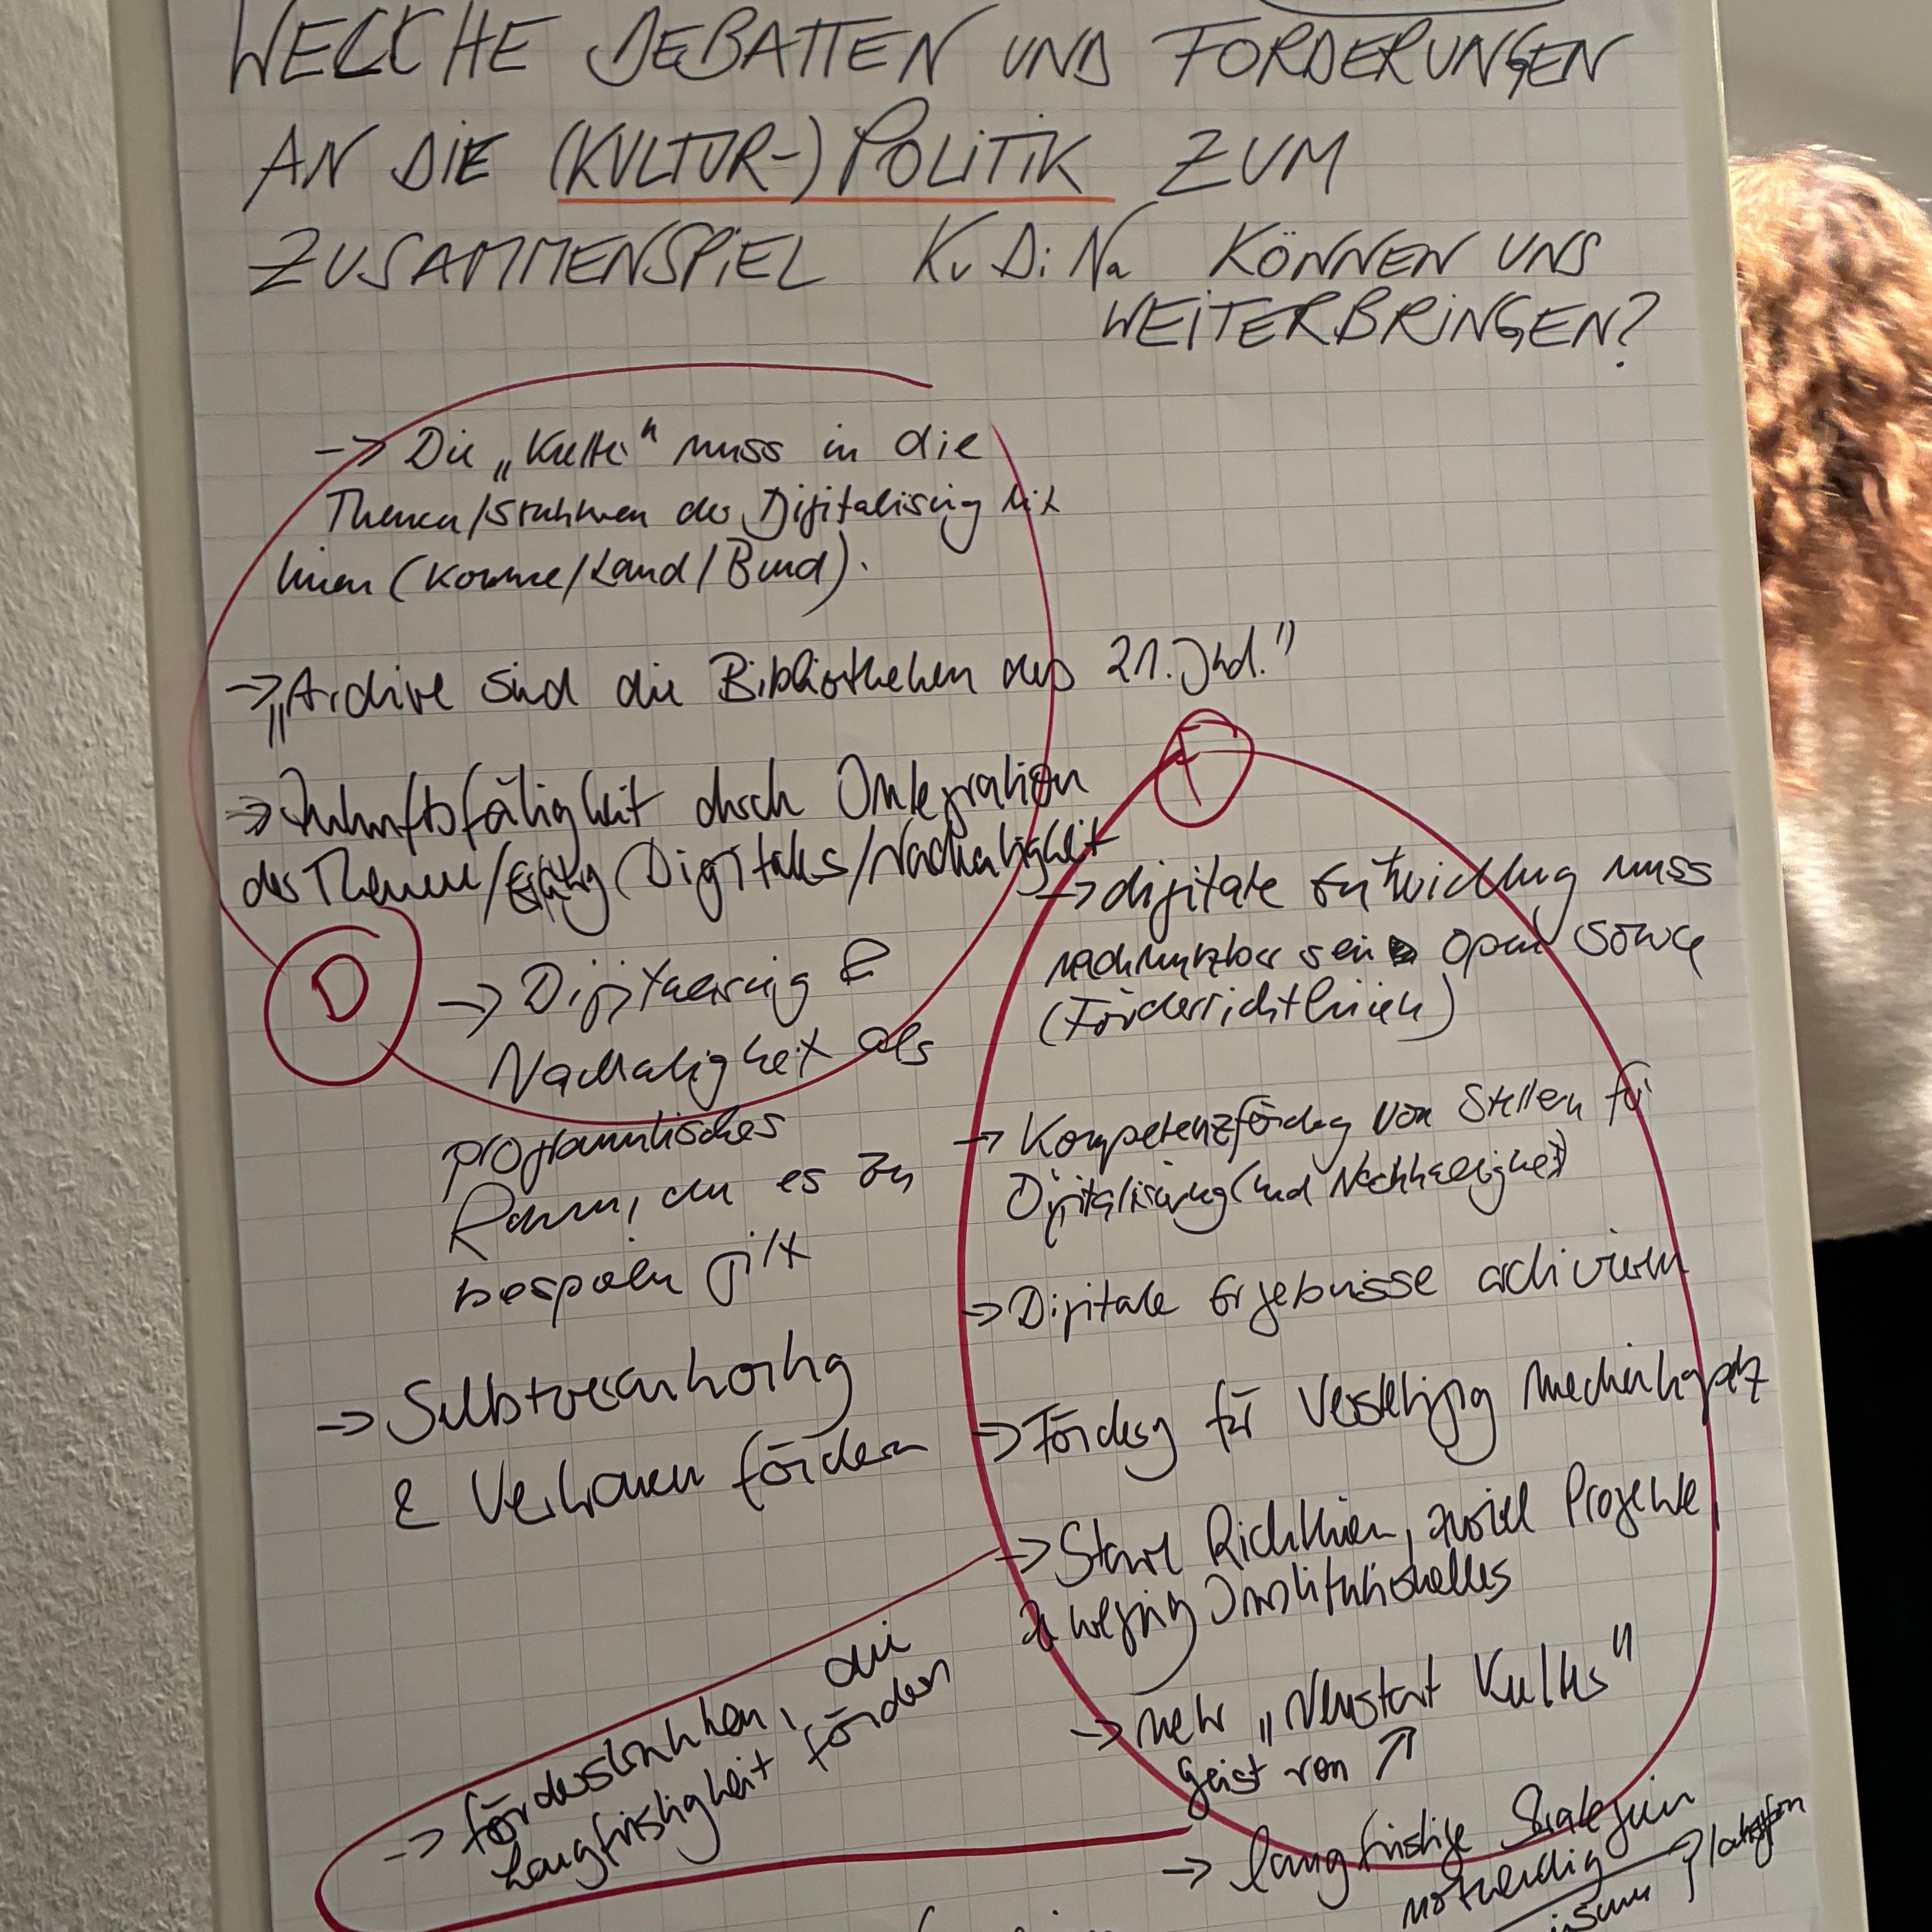 WELCHE DEBATTEN UND FORDERUNGEN
AN DIE (KULTUR-)POLITIK ZUM
ZUSAMMENSPIEL KuDiNa KÖNNEN UNS
WEITERBRINGEN?
-> Die „Kultur" muss in die
Themen/Strukturen der Digitalisierung mit
hinein (Kommune/Land/Bund).
-> „Archive sind die Bibliotheken des 21. Jhd."
-> Zukunftsfähigkeit durch Integration
der Themen/ Digitales/Nachhaltigkeit
D
-> Digitalisierung &
Nachhaltigkeit als
programmatisches
Raum, den es zu
bespielen gilt
-> Selbstverantwortung
& Vertrauen fördern
-> Förderstrukturen, die
Langfristigkeit fördern
F
-> digitale Entwicklung muss
nachnutzbar sein open source
(Förderrichtlinien)
-> Kompetenzförderung von Stellen für
Digitalisierung (und Nachhaltigkeit)
-> Digitale Ergebnisse archivieren
-> Förderung für Verstetigung
-> Starre Richtlinien, zuviel Projekte,
zu wenig Institutionelles
-> mehr „Neustart Kultur"
geist von ↗
-> langfristige Strategien
notwendig